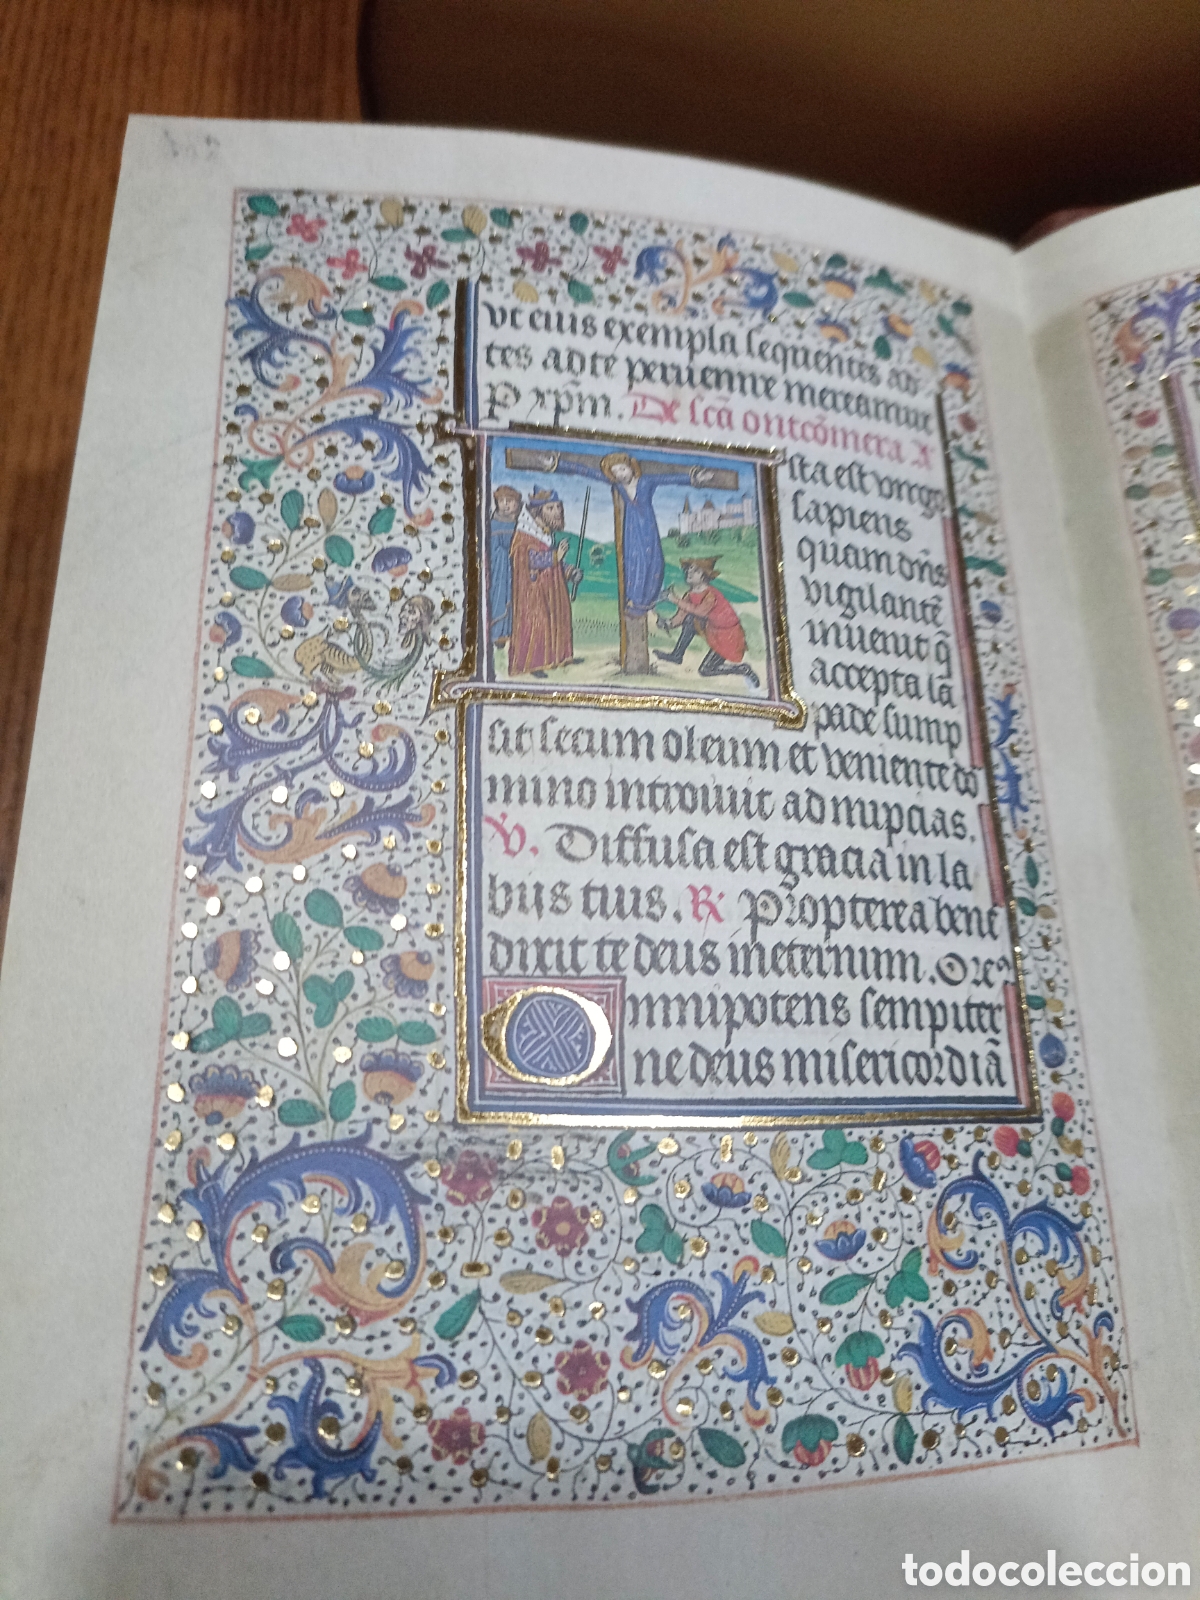 ut eius exempla sequentes ad
tes ad te peruenire mereamur
P xpm. De scā ontcōmera A
ista est virgo
sapiens
quam dn̄s
vigilantē
inuenit q̄
accepta la
pade sump
sit secum oleum et veniente do
mino introiuit ad nupcias.
V. Diffusa est gracia in la
bijs tuis. R Propterea bene
dixit te deus in eternum. Ore⁹
Omnipotens sempiter
ne deus misericordiā
todocoleccion